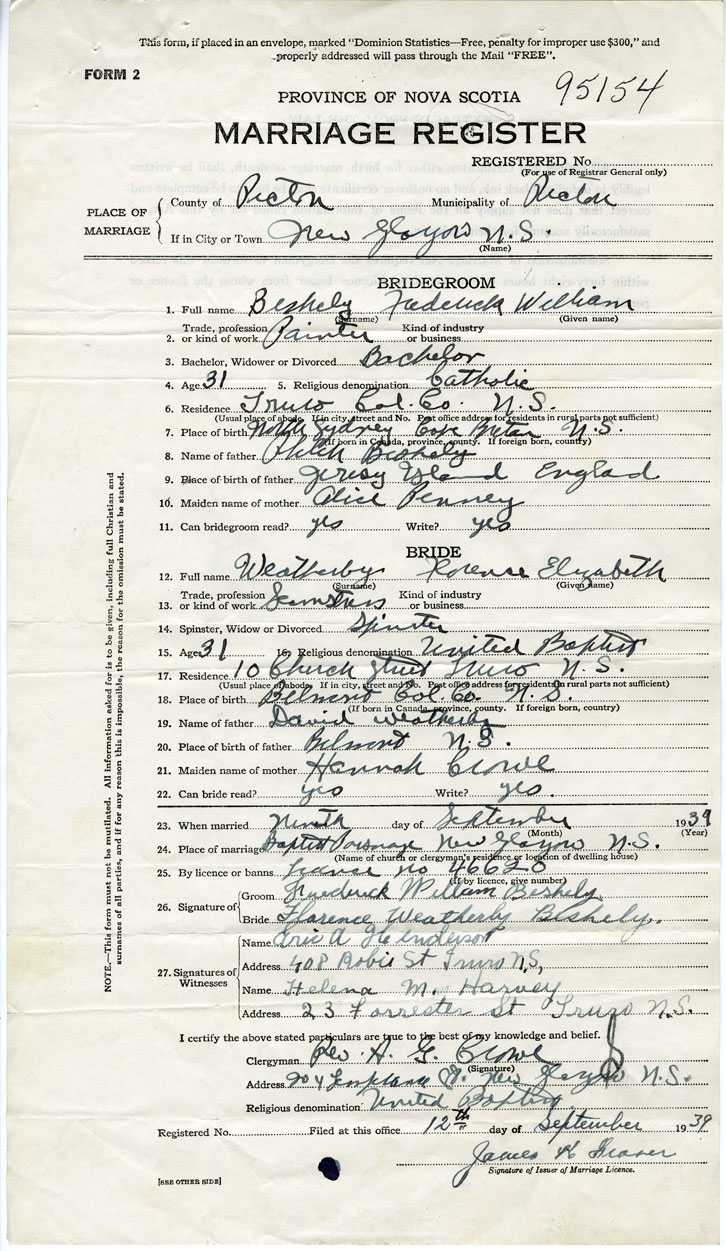 This form, if placed in an envelope, marked "Dominion Statistics—Free, penalty for improper use $300," and
properly addressed will pass through the Mail "FREE".
FORM 2
95154
PROVINCE OF NOVA SCOTIA
MARRIAGE REGISTER
REGISTERED No.
(For use of Registrar General only)
PLACE OF MARRIAGE
County of Pictou Municipality of Pictou
If in City or Town New Glasgow N.S.
(Name)
BRIDEGROOM
1. Full name Beshely Frederick William
(Surname) (Given name)
Trade, profession Kind of industry
2. or kind of work Painter or business
3. Bachelor, Widower or Divorced Bachelor
4. Age 31 5. Religious denomination Catholic
6. Residence Truro Col. Co. N.S.
(Usual place of abode. If in city, street and No. Post office address for residents in rural parts not sufficient)
7. Place of birth North Sydney Cape Breton N.S.
(If born in Canada, province, county. If foreign born, country)
8. Name of father Beshely
9. Place of birth of father Jersey Island England
10. Maiden name of mother Alice Penney
11. Can bridegroom read? yes Write? yes
BRIDE
12. Full name Weatherby Florence Elizabeth
(Surname) (Given name)
Trade, profession Kind of industry
13. or kind of work Seamstress or business
14. Spinster, Widow or Divorced Spinster
15. Age 31 16. Religious denomination United Baptist
17. Residence 10 Church Street Truro N.S.
(Usual place of abode. If in city, street and No. Post office address for residents in rural parts not sufficient)
18. Place of birth Belmont Col. Co. N.S.
(If born in Canada, province, county. If foreign born, country)
19. Name of father David Weatherby
20. Place of birth of father Belmont N.S.
21. Maiden name of mother Hannah Crowe
22. Can bride read? yes Write? yes.
23. When married Ninth day of September 1939
(Month) (Year)
24. Place of marriage Baptist Parsonage New Glasgow N.S.
(Name of church or clergyman's residence or location of dwelling house)
25. By licence or banns licence no 46620
(If by licence, give number)
26. Signature of
Groom Frederick William Beshely
Bride Florence Weatherby Beshely.
27. Signatures of Witnesses
Name Eric A Henderson
Address 408 Robie St Truro N.S,
Name Helena M. Harvey
Address 23 Forrester St Truro N.S.
I certify the above stated particulars are true to the best of my knowledge and belief.
Clergyman Rev. A. G. Crowe
(Signature)
Address 204 Temperance St. New Glasgow N.S.
Religious denomination United Baptist
Registered No. Filed at this office 12th day of September 1939
James K Fraser
Signature of Issuer of Marriage Licence.
[SEE OTHER SIDE]
NOTE.—This form must not be mutilated. All information asked for is to be given, including full Christian and
surnames of all parties, and if for any reason this is impossible, the reason for the omission must be stated.